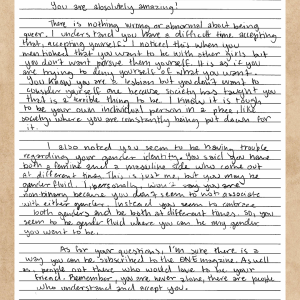 You are absolutely amazing!
There is nothing wrong or abnormal about being
queer. I understand you have a difficult time accepting
that, accepting yourself. I noticed this when you
mentioned that you want to be with other girls but
you don't want to pursue them yourself. It is as if you
are trying to deny yourself of what you want.
You know you are a lesbian but you don't want to
consider yourself one because society has taught you
that is a terrible thing to be. I know it is tough
to be your own individual person in a like
society where you are constantly being put down for
it.
I also noted you seem to be having trouble
regarding your gender identity. You said you have
both a feminine and a masculine side who come out
at different times. This is just me, but you may be
genderfluid. I personally, won't say you are
nonbinary because you don't seem to not associate
with either gender. Instead you seem to embrace
both genders and be both at different times. So, you
seem to be genderfluid where you can be any gender
you want to be.
As for your questions, I'm sure there is a
way you can be subscribed to the ONE magazine. As well
as, people out there who would love to be your
friend. Remember, you are never alone, there are people
who understand and accept you.